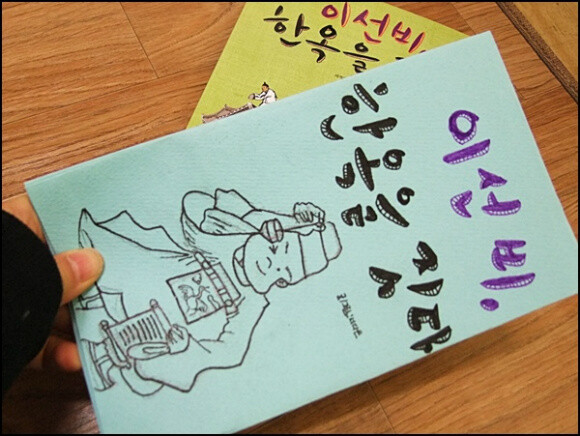 이선비,
한옥을
이선비,
한옥을 짓다